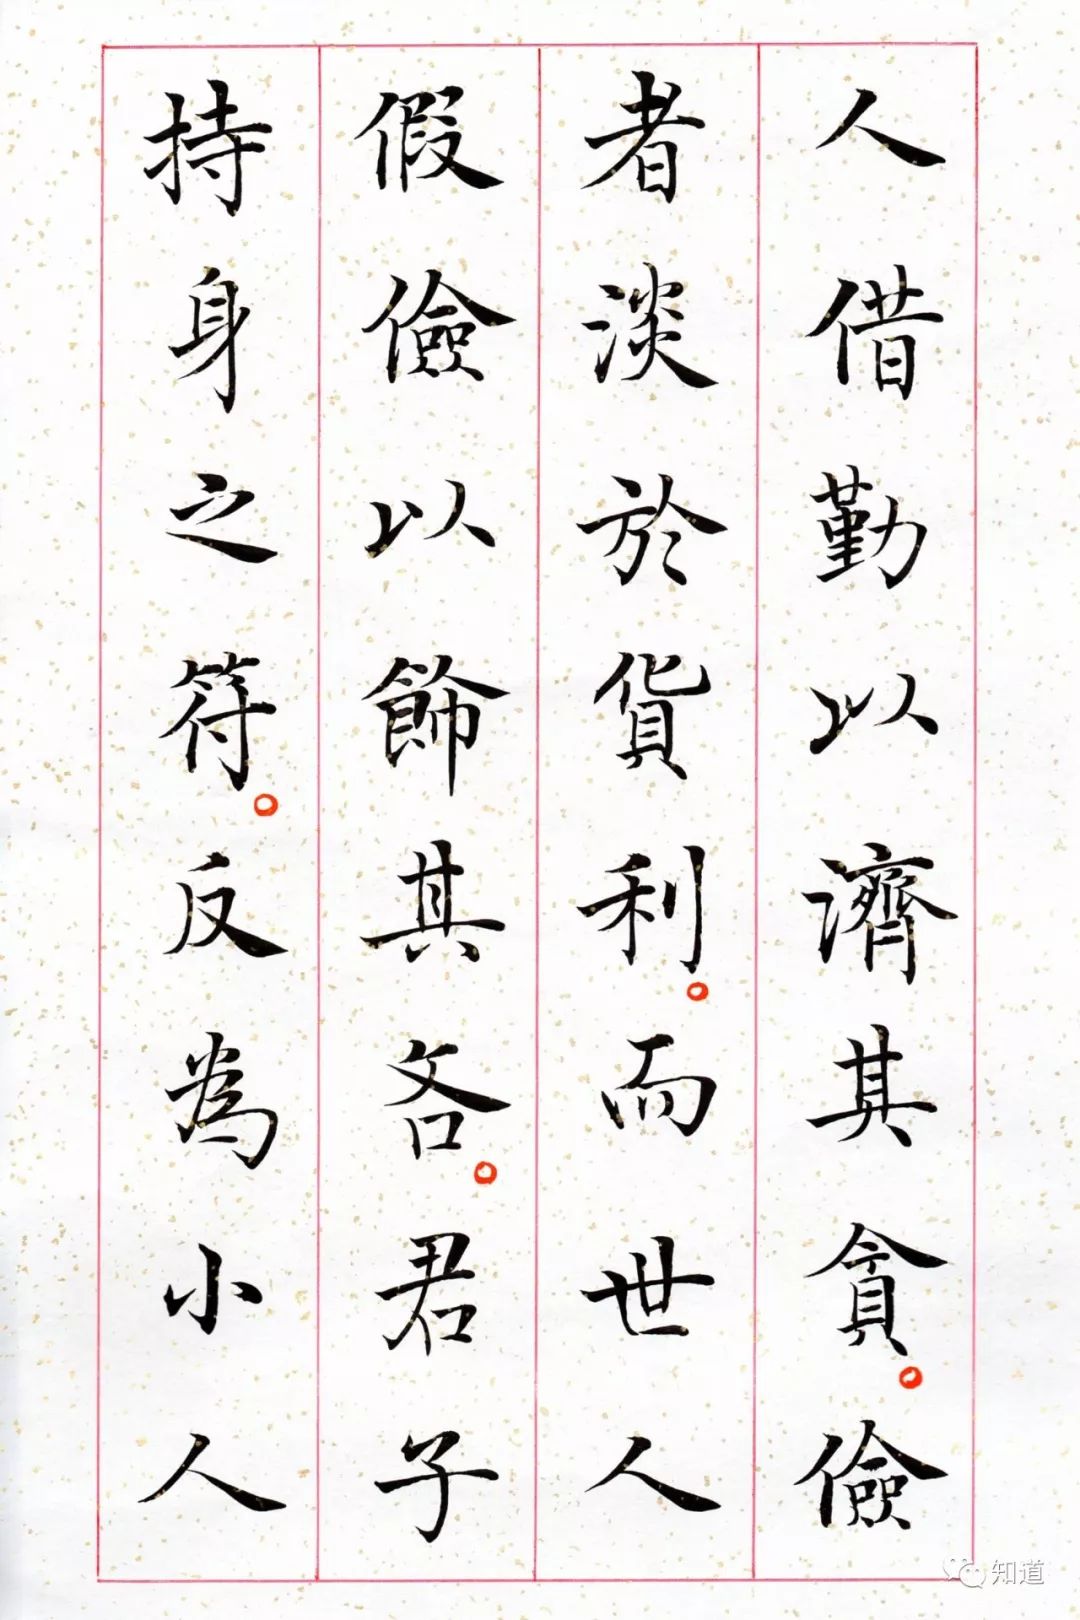 人借勤以濟其貪。儉
者淡於貨利。而世人
假儉以飾其吝。君子
持身之符。反為小人
知道